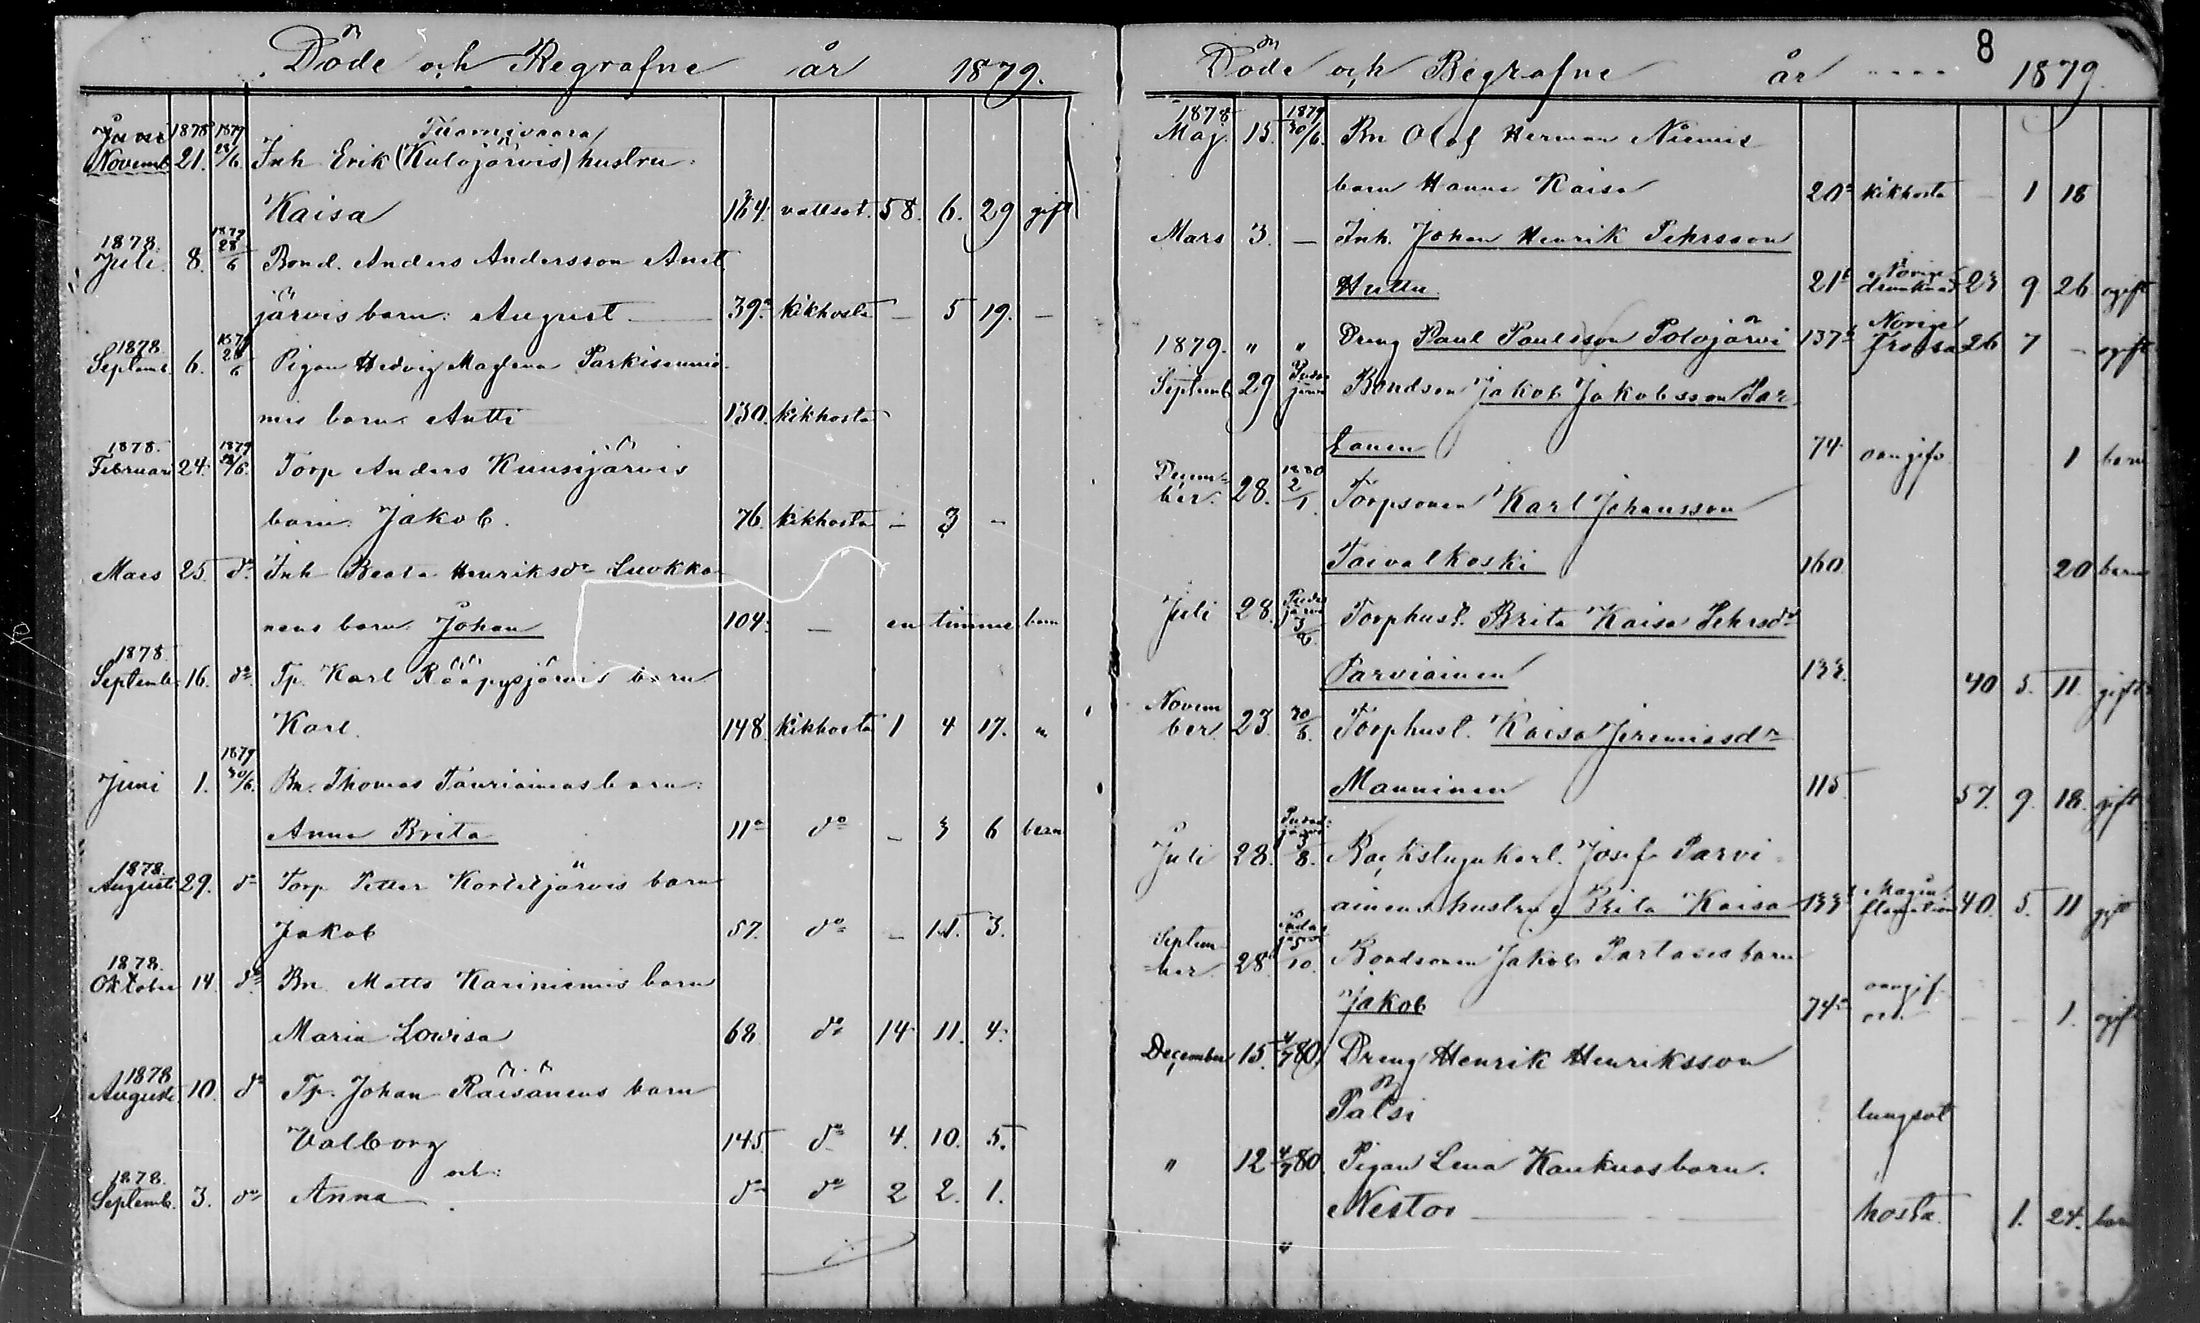 Döde och Begrafne år 1879.
Juni 1878 1879 Tuomivaara
Novemb. 21. 28/6. Inh Erik (Kulojärvis) hustru:
Kaisa 164 vattsot. 58. 6. 29 gift
1878. 1879
Juli. 8. 28/6 Bond. Anders Andersson Anet
järvis barn: August 39a kikhosta — 5 19. —
1878 1879
Septemb. 6. 28/6 Pigan Hedvig Magdena Parkisennie
mis barn. Antti 130. kikhosta
1878. 1879
Februari 24. /6. Torp Anders Kuusijärvis
barn. Jakob. 76. kikhosta — 3 —
Mars 25. do. Inh Beata Henriksdr Luokka
nens barn. Johan 104. — en timme barn
1878
Septemb. 16. do. Tp. Karl Rääpysjärvis barn
Karl. 148. kikhosta 1 4 17. "
1879
Juni 1. 30/6. Bn. Thomas Tauriainens barn:
Anna Brita 11a do — 3 6 barn
1878.
August 29. do Torp Petter Korteljärvis barn
Jakob 57. do — 11. 3.
1878.
Oktober 14. do. Bn. Matts Kariniemis barn
Maria Lowisa 68 do 14 11. 4.
1878
Augusti 10. do Tp. Johan Räisänens barn
Valborg 145. do 4. 10. 5.
1878. och:
Septemb. 3. do Anna do do 2 2. 1.
8
Döde och Begrafne år .... 1879.
1878 1879
Maj. 15. 30/6. Bn Olof Herman Niemis
barn Hanna Kaisa 20a kikhosta — 1 18
Mars 3. — Inh. Johan Henrik Pehrsson
Huttu 21b i Norige drunknad 23 9 26 ogift
1879. " " Dreng Paul Paulsson Polojärvi 137b Norige Tromsø 26 7 — ogift
Septemb. 29 Pudasjärvi Bondson Jakob Jakobsson Par
tanen 74 oangifv. 1 barn
Decem- 1880
ber. 28. 2/1. Torpsonen Karl Johansson
Taivalkoski 160 20 barn
Juli 28. Pudasjärvi 3/8. Torphust. Brita Kaisa Pehrsdr
Parviainen 133. 40 5. 11. gift
Novem
ber. 23. 30/6. Torphust. Kaisa Jeremiasdr
Manninen 115 57. 9. 18. gift
Juli 28. Pudasjärvi 3/8. Backstugukarl. Josef Parvi
ainens hustru Brita Kaisa 133b Maginflamation 40. 5. 11 gift
Septem-
ber 28. Pudasjärvi 5/10. Bondsonen Jakob Partases barn
Jakob 74a oangif. ors. — — 1. ogift
December 15. 4/7 80. Dreng Henrik Henriksson
Palsi lungsot
" 12 4/7 80. Pigan Lena Kaukuasbarn.
Nestor hosta. 1. 24. barn